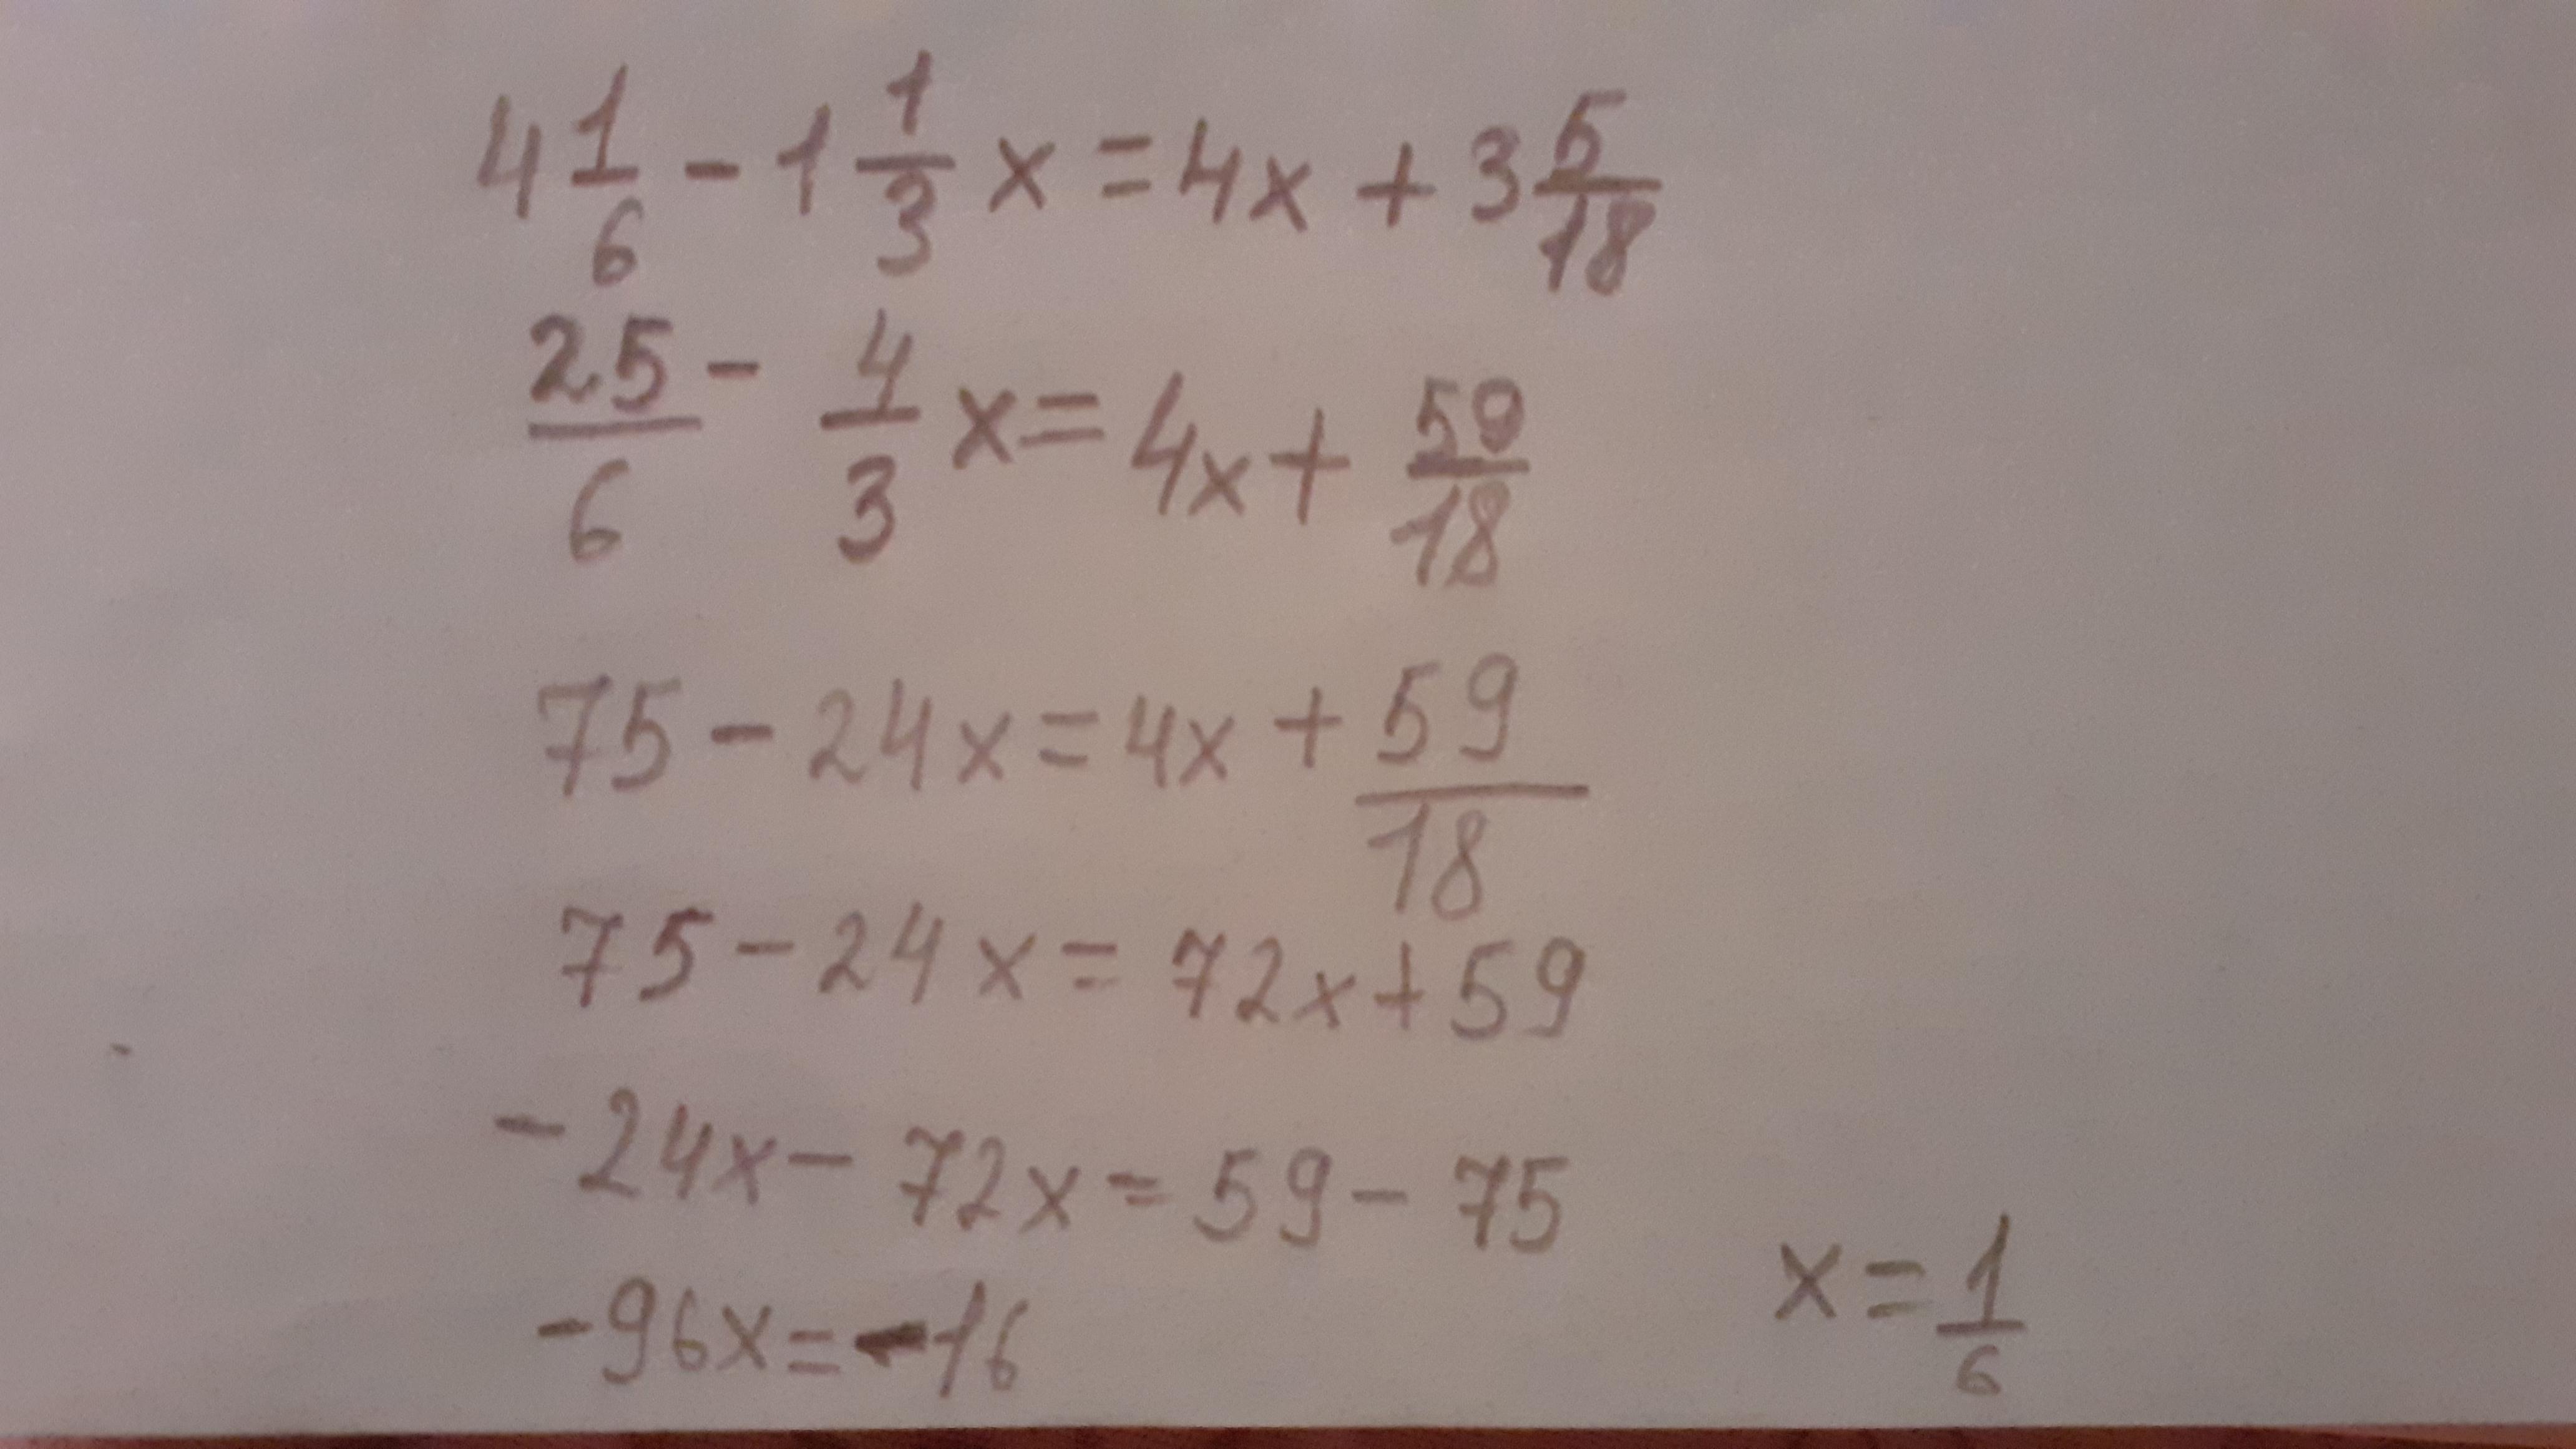 4 1/6 - 1 1/3 x = 4x + 3 5/18
25/6 - 4/3 x = 4x + 59/18
75 - 24x = 4x + 59/18
75 - 24x = 72x + 59
-24x - 72x = 59 - 75
-96x = -16
x = 1/6